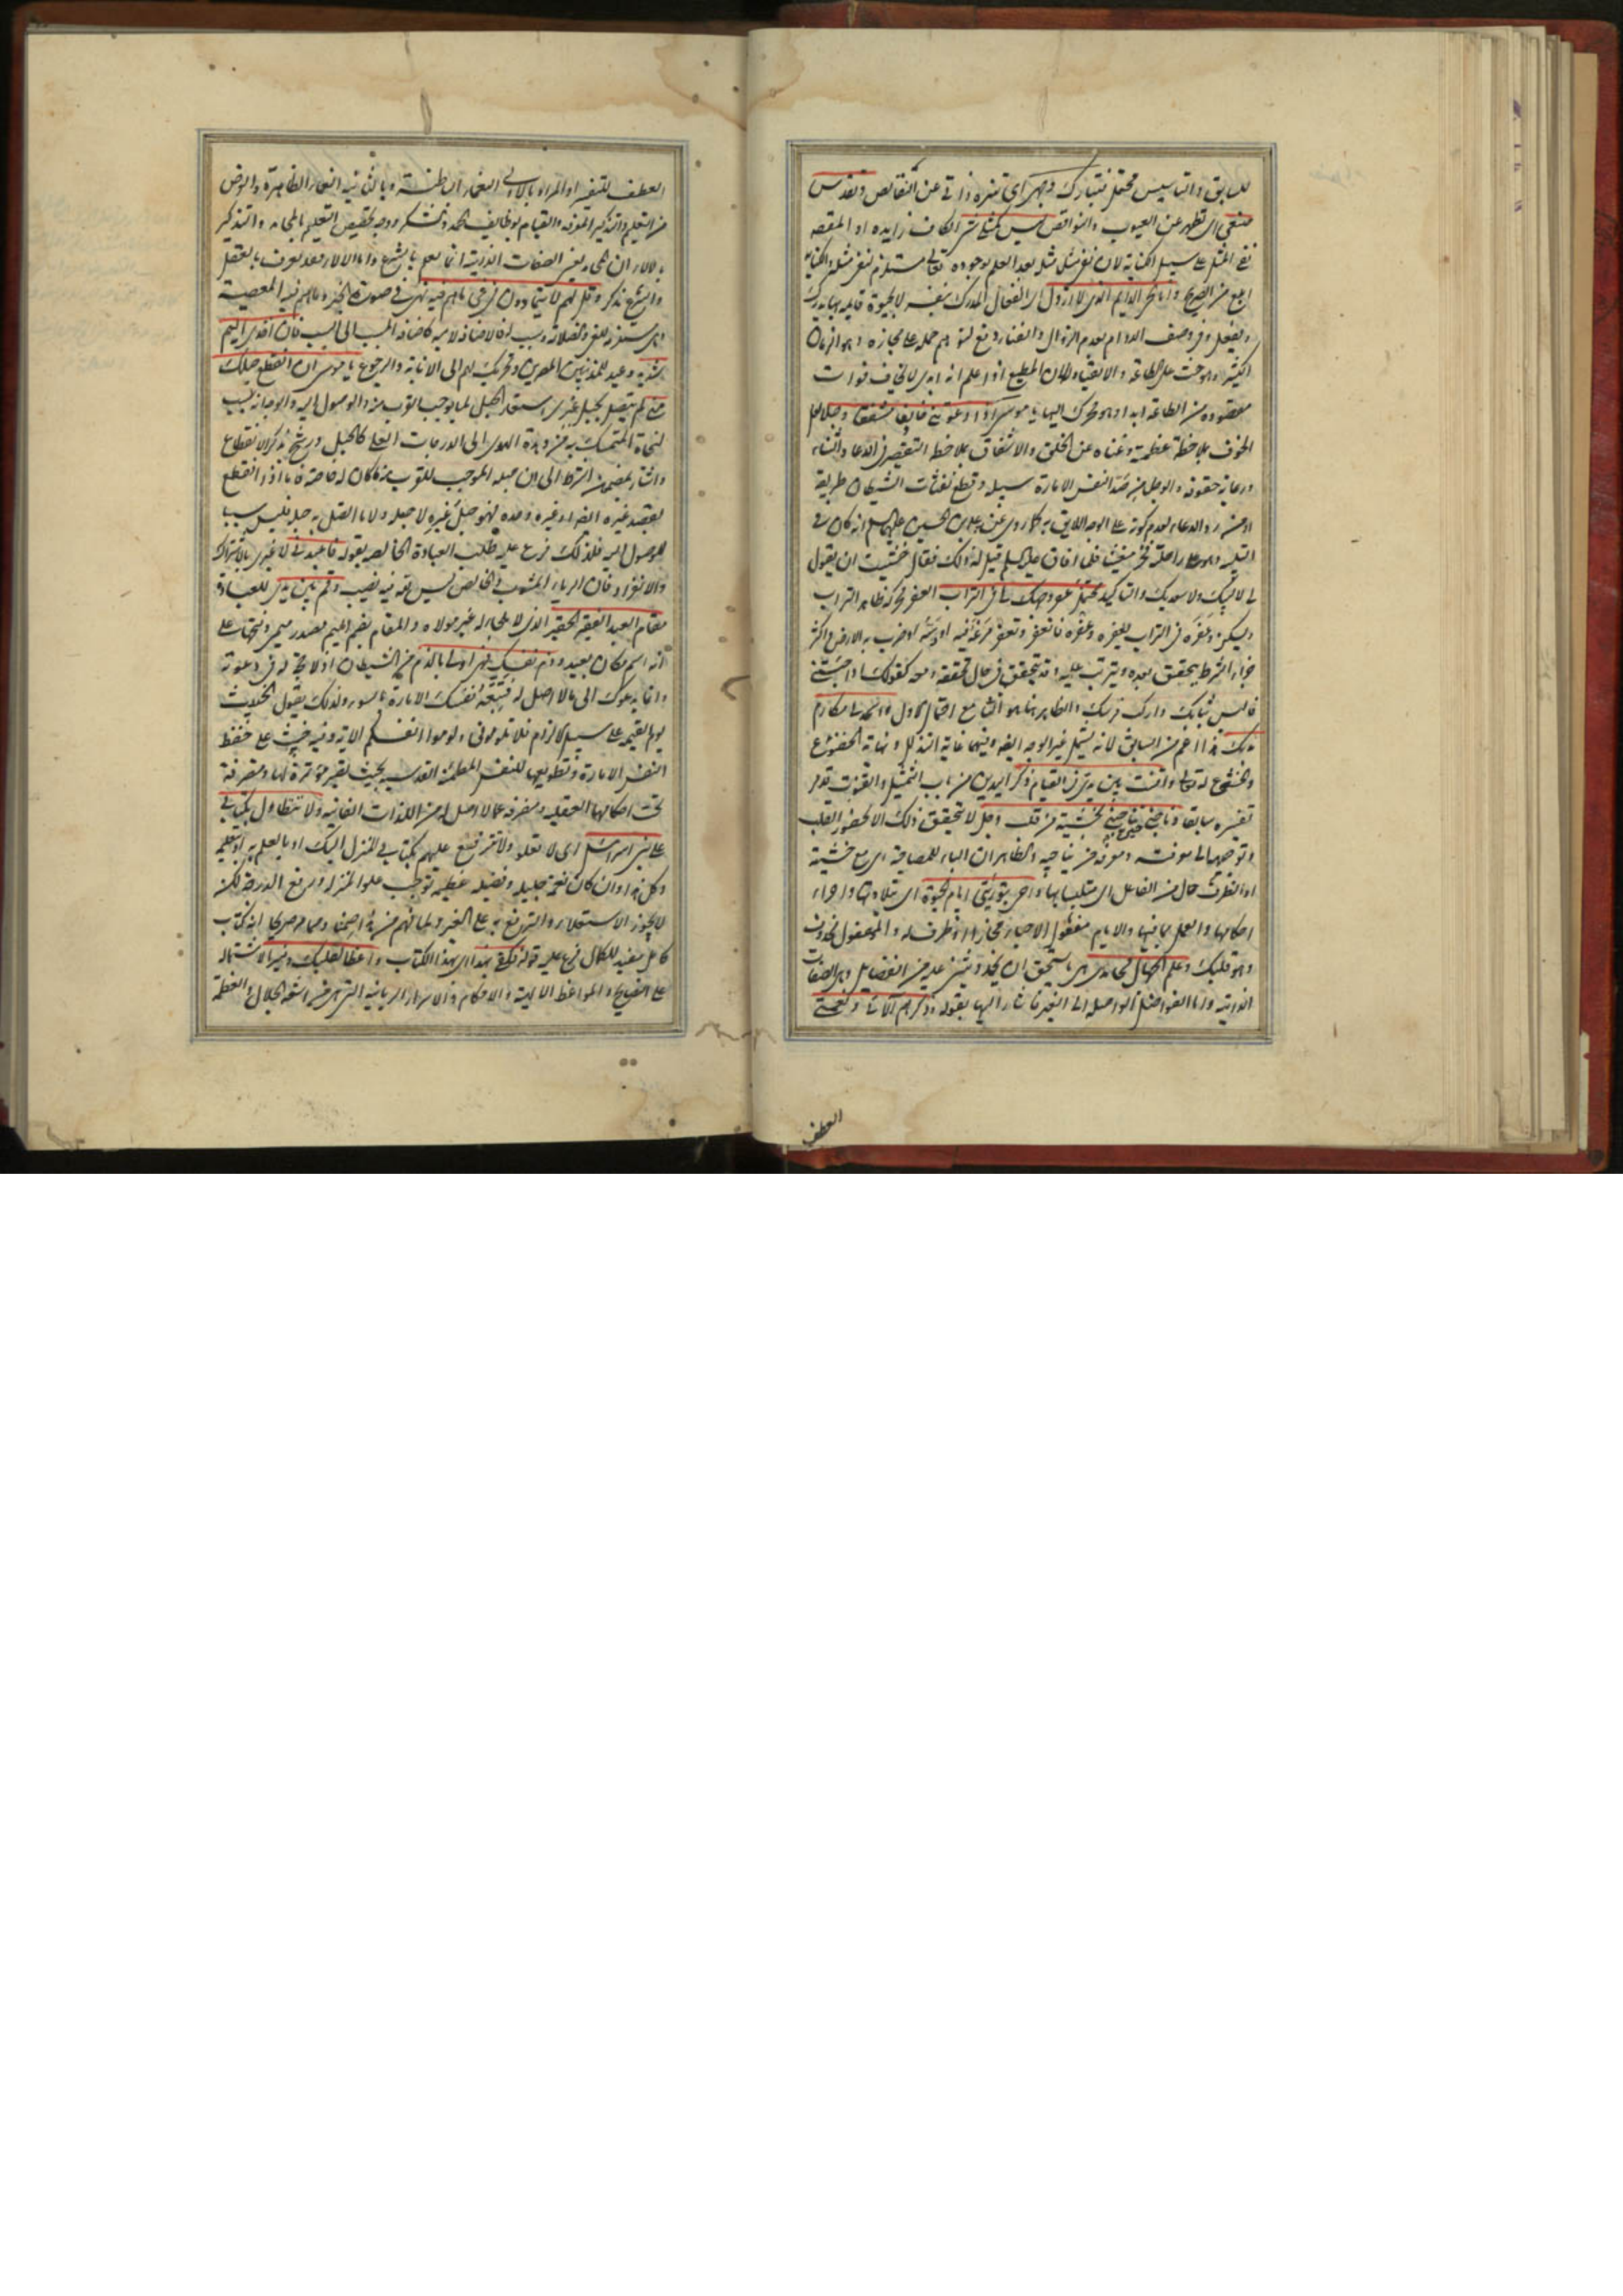 للسابق والتاسيس محتمل فتبارك وجهى اى تنزه ذاتى عن النقائص وتقدس
صنعى اى تطهر عن العيوب والنواقص ليس كمثلى شئ الكاف زايده او المقصود
نفى المثل على سبيل الكناية لان نفى مثل مثل بعد العلم بوجوده تعالى مستلزم لنفى مثله والكناية
ابلغ من الصريح وانا الحى الدايم الذى لا ازول اى الفعال المدرك بنفسه لا بحيوة قايمه بها يدرك
ويفعل وفى وصف الدوام بعدم الزوال والفناء دفع لتوهم حمله على مجازه وهو الزمان
الكثير وهو حث على الطاعة والانقياد لان المطيع اذا علم انه ابدى لا يخاف فوات
مقصوده من الطاعة ابدا وهو محرك اليها يا موسى كن اذا دعوتنى خايفا مشفقا وجلا لعل
الخوف بملاحظة عظمته وغناه عن الخلق والاشفاق بملاحظة التقصير فى الدعاء والثناء
ورعاية حقوقه والوجل من صد النفس الامارة سبيله وقطع نفثات الشيطان طريقه
او من رد الدعاء لعدم كونه على الوجه اللايق به كما روى عن على بن الحسين عليهما السلم انه كان فى
التلبيه وهو على راحلته فخر مغشيا فلما افاق عليه السلم قيل له ذلك فقال خشيت ان يقول
لى لا لبيك ولا سعديك والتاكيد محتمل عفر وجهك لى فى التراب العفر محركة ظاهر التراب
ويسكن وعفره فى التراب يعفره وعفره فانعفر وتعفر مرغه فيه او دسه او ضرب به الارض واكثر
جزاء الشرط يتحقق بعده ويترتب عليه وقد يتحقق فى حال تحققه ومعه كقولك اذا جئتنى
فالبس ثيابك واركب فرسك والظاهر هنا هو الثانى مع احتمال الاول واسجد لى بمكارم
بدنك هذا اعم من السابق لانه يشمل غير الوجه ايضه وفيهما غاية التذلل ونهاية الخضوع
والخشوع له تعالى واقنت بين يدى فى القيام ذكر اليدين من باب التمثيل والقنوت قد مر
تفسيره سابقا وناجنى حين تناجينى بخشية من قلب وجل لا يتحقق ذلك الا بحضور القلب
وتوجهه الى معرفته ومعرفة من يناجيه والظاهر ان الباء للمصاحبة اى مع خشية
او الظرف حال من الفاعل اى متلبسا بها واحى بتوريتى ايام الحيوة اى بتلاوتها واجراء
احكامها والعمل بما فيها والايام مفعول الاحياء مجازا او ظرف له والمفعول محذوف
وهو قلبك وعلم الجهال محامدى هى ما يستحق ان يحمد ويثنى عليه من الفضايل وهى الصفات
الذاتيه واما الفواضل الواصلة الى الغير فاشار اليها بقوله وذكرهم آلائى ونعمتى
العطف
العطف للتفسير او المراد بالاولى النعماء الباطنة وبالثانيه النعماء الظاهرة والغرض
من التعليم والتذكير المعرفة والقيام بوظايف الحمد والشكر ووجه تخصيص التعليم بالمحامد والتذكير
بالآلاء ان المحامد يعنى الصفات الذاتية انما يعلم بالشرع واما الالاء فقد يعرف بالعقل
والشرع مذكر وقل لهم لا يتمادون فى غى ما هم فيه نهى فى صورة الخبر وما هم فيه المعصية
وهى مستلزمة للغى والضلالة وسبب له فالاضافة لاميه كاضافة المسبب الى السبب فان اخذى اليم
شديد وعيد للمذنبين المصرين وتحريك لهم الى الانابة والرجوع يا موسى ان انقطع حبلك
منى لم يتصل بحبل غيرى استعار الحبل لما يوجب القرب منه والوصول اليه والوجه انه سبب
لنجاة المتمسك به من وهدة الهوى الى الدرجات العلى كالحبل ورشح بذكر الانقطاع
واشار بمضمون الشرط الى ان حبله الموجب للقرب منه ما كان له خاصة فاما اذا انقطع
بقصد غيره ايضه او غيره وحده فهو حبل غيره لا حبله ولا ما اتصل به حبله فليس سببا
للوصول اليه فلذلك فرع عليه طلب العبادة الخالصه بقوله فاعبدنى لا غيرى بالاشتراك
والانفراد فان الرياء المشوب فى الخالص ليس لله فيه نصيب وقم بين يدى للعبادة
مقام العبد الفقير الحقير الذى لا ملجا له غير مولاه والمقام بضم الميم مصدر ميمى وبفتحها على
انه اسم مكان بعيد وذم نفسك فهى اولى بالذم من الشيطان اذ لا حجة له فى دعوته
وانما يدعوك الى ما لا اصل له فتتبعه نفسك الامارة بالسوء ولذلك يقول الخبيث
يوم القيمه على سبيل الالزام فلا تلومونى ولوموا انفسكم الاية وفيه حث على حفظ
النفس الامارة وتطويعها للنفس المطمئنة القدسيه بحيث تصير مؤتمرة لها ومتصرفة
تحت احكامها العقليه ومنصرفة عما لا اصل له من اللذات الفانيه ولا تتطاول بكتابى
على بنى اسرائيل اى لا تعلو ولا تترفع عليهم بكتابى المنزل اليك او بالعلم به او بتعليمه
وكل هذا وان كان نعمة جليله وفضيله عظيمه توجب علو المنزله ورفع الدرجة لكن
لا يجوز الاستعلاء والترفع به على الغير ولما فهم من هذا ضمنا ومما مر صريحا انه كتاب
كامل مفيد للكمال فرع عليه قوله فكفى بهذا اى بهذا الكتاب واعظا لقلبك ومنيرا لاشتماله
على النصايح والمواعظ البالغة والاحكام والاسرار الربانيه التى هى من اشعة الجلال والعظمة